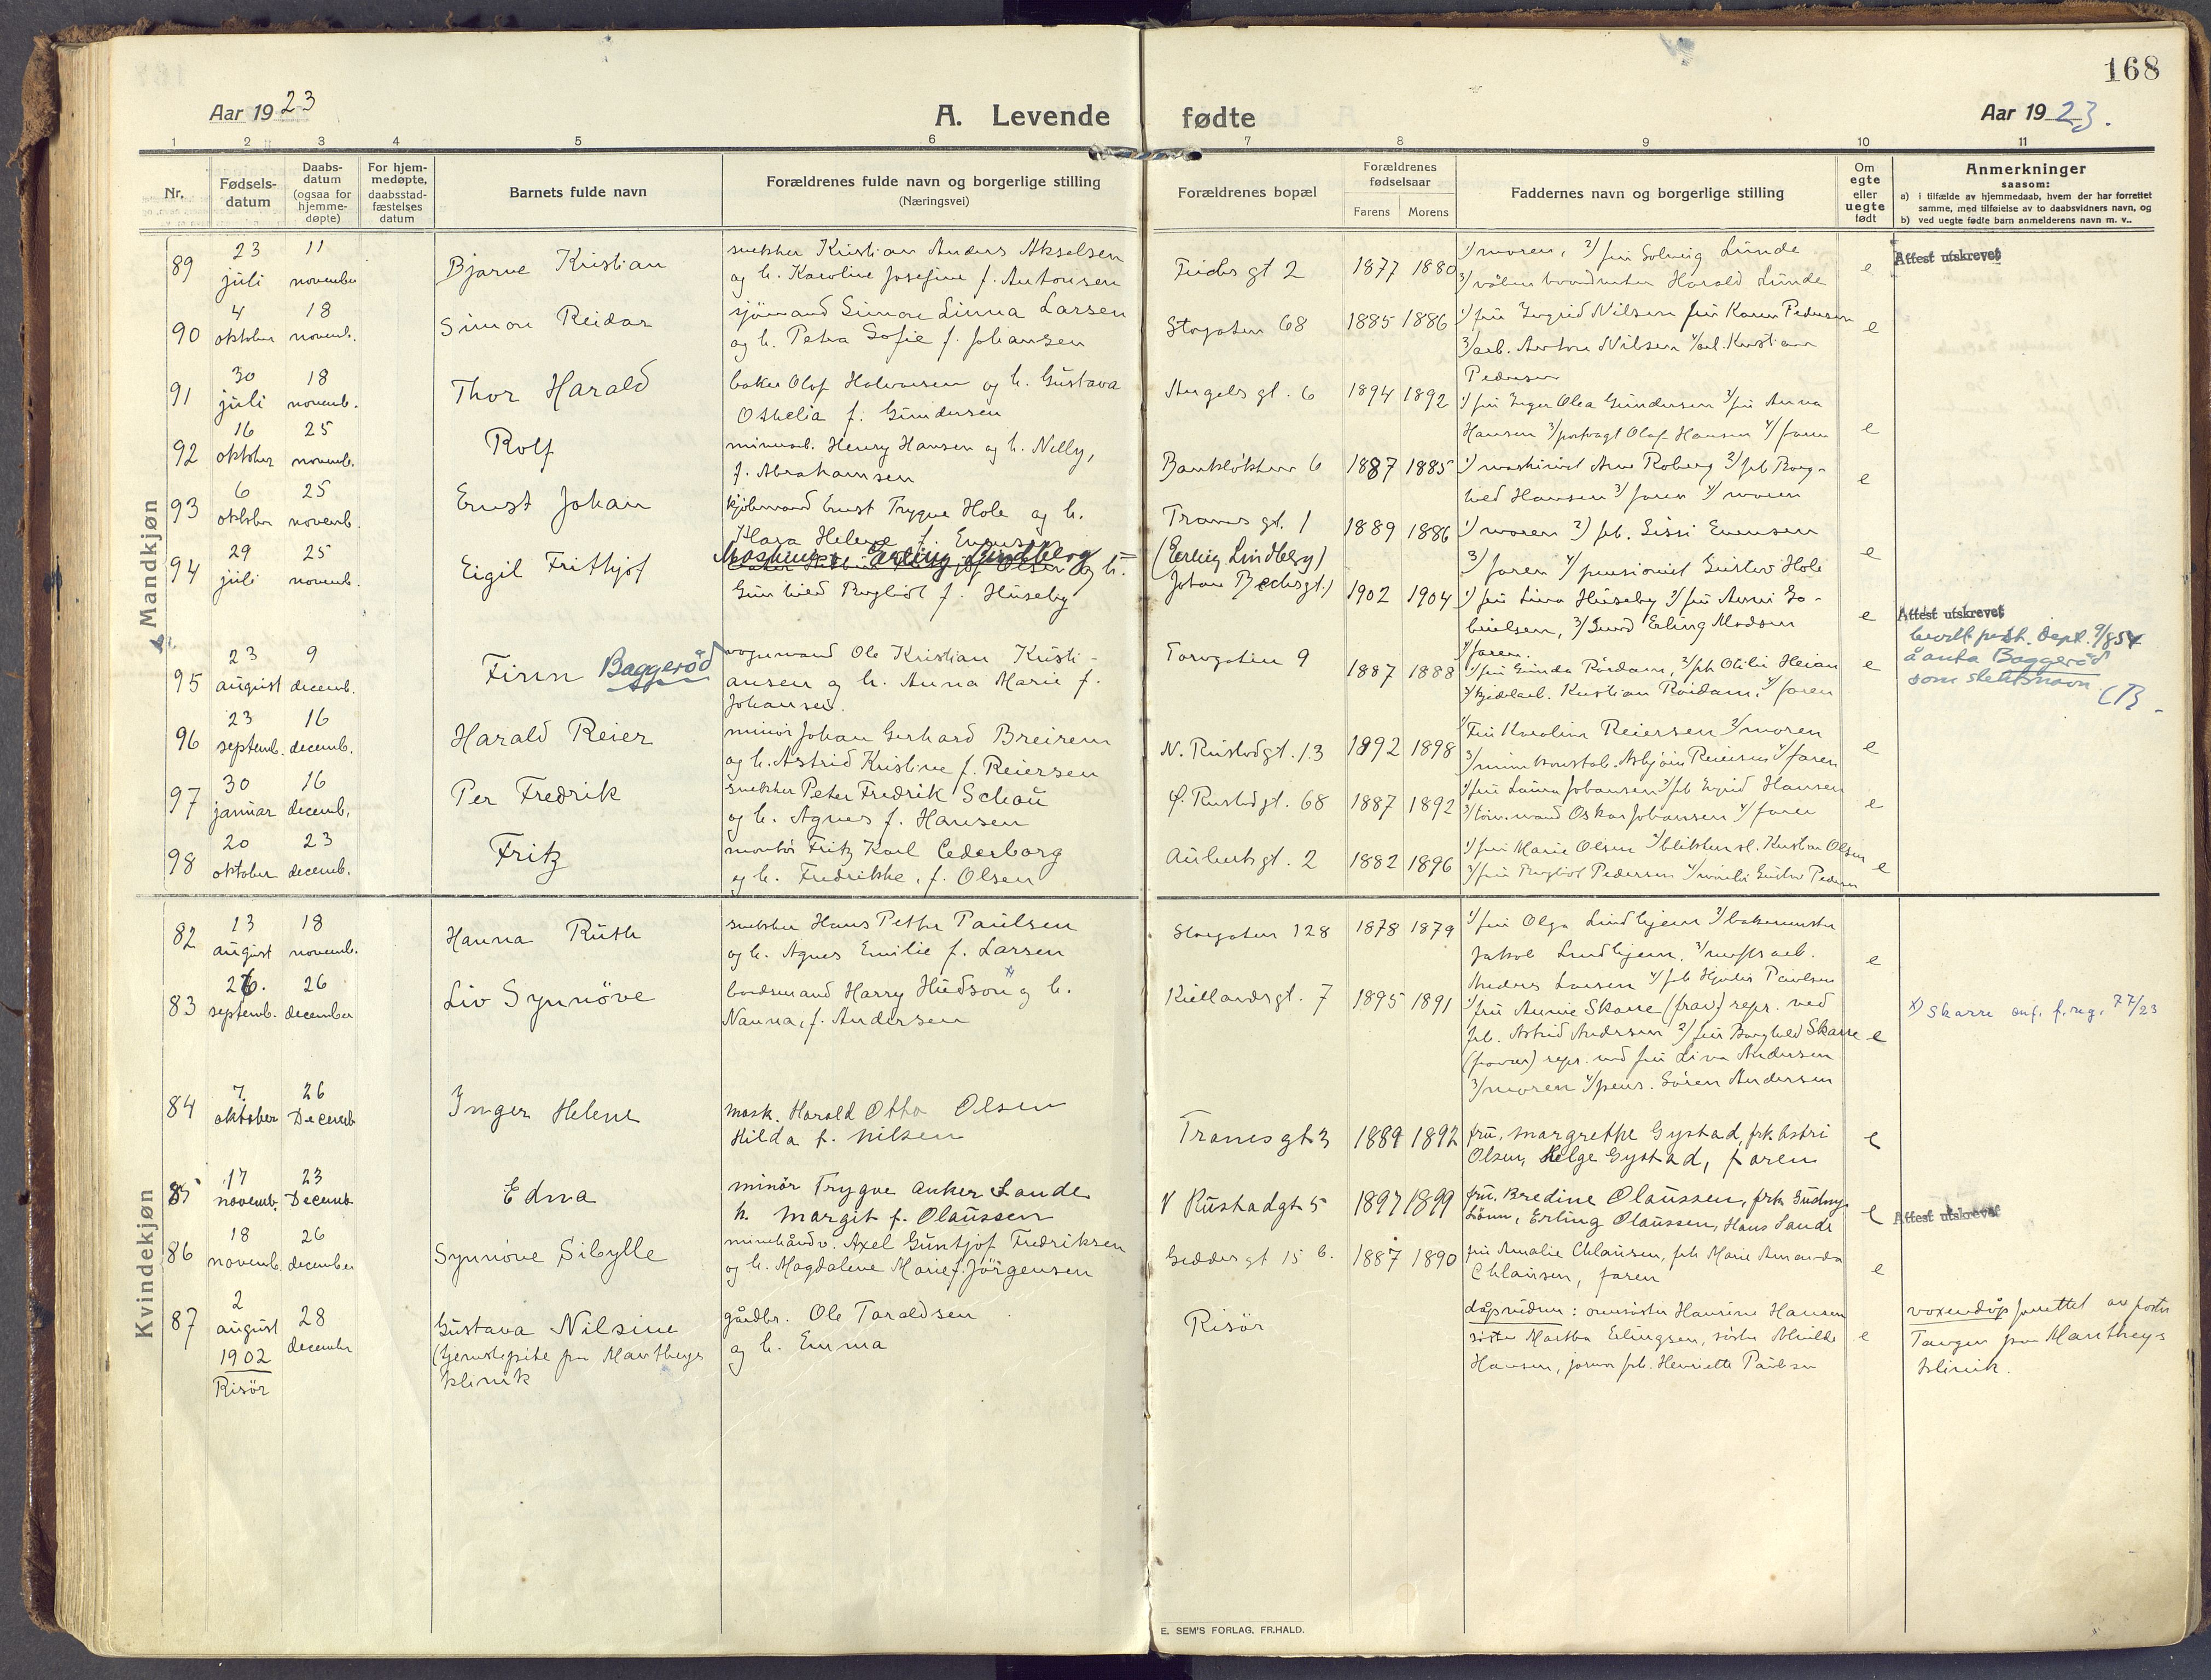 168
Aar 1923
A. Levende fødte
Aar 1923.
1 2 3 4 5 6 7 8 9 10 11
Nr.
Fødsels-datum
Daabs-datum (ogsaa for hjemme-døpte)
For hjem-medøpte, daabsstad-fæstelses datum
Barnets fulde navn
Forældrenes fulde navn og borgerlige stilling
(Næringsvei)
Forældrenes bopæl
Forældrenes fødselsaar
Farens Morens
Faddernes navn og borgerlige stilling
Om egte eller uegte født
Anmerkninger
saasom:
a) i tilfælde av hjemmedaab, hvem der har forrettet
samme, med tilføielse av to daabsvidners navn, og
b) ved uegte fødte barn anmelderens navn m. v..
Mandkjøn
89 23 juli 11 november Bjarne Kristian
snekker Kristian Anders Akselsen
og h. Karoline Josefine f. Antonsen
gt 2 1877 1880
1/ moren, 2/ fru Solveig Lunde
3/ Harald Lunde
e
Attest utskrevet
90 4 oktober 18 novemb. Simon Reidar
sjömand Simon Linna Larsen
og h. Petra Sofie f. Johansen
Storgaten 68 1885 1886
1/ fru Ingrid Nilsen fru Karen Pedersen
3/ arb. Anton Nilsen 4/ arb. Kristian
Pedersen
e
91 30 juli 18 novemb. Thor Harald
baker Olaf Halvorsen og h. Gustava
Othelia f. Gundersen
Angels gt. 6 1894 1892
1/ fru Inger Olea Gundersen 2/ fru Anna
Hansen 3/ portvagt Olaf Hansen 4/ faren
e
92 16 oktober 25 novemb. Rolf
minearb. Henry Hansen og h. Nelly,
f. Abrahamsen
Bankløkken 6 1887 1885
1/ maskinist Arne Roberg 2/ frk Borg-
hild Hansen 3/ faren 4/ moren
e
93 6 oktober 25 novemb. Ernst Johan
kjøbmand Ernst Trygve Hole og h.
Klara Helene f. Evensen
Tranes gt. 1 1889 1886
1/ moren 2/ frk. Sissi Evensen
3/ faren 4/ pensionist Gustav Hole
e
94 29 juli 25 novemb. Eigil Frithjof
Erling Lindberg og h.
Gunhild Bergliot f. Huseby
(Erling Lindberg)
Johan gt. 1902 1904
1/ fru Lina Huseby 2/ fru Anni Ga-
brielsen, 3/ Erling Madsen
4/ faren.
e
Attest utskrevet
95 23 august 9 decemb. Finn Baggeröd
vognmand Ole Kristian Kristi-
ansen og h. Anna Marie f.
Johansen.
Torvgaten 9 1887 1888
1/ fru Gunda Røidam, 2/ frk Otilie Heian
3/ Kristian Røidam, 4/ faren
e
bevilt just. dept. 9/8 54
å anta Baggeröd
som slektsnavn
96 23 septemb. 16 decemb. Harald Reier
minör Johan Gerhard Breirem
og h. Astrid Kristine f. Reiersen
N. Rustadgt. 13 1892 1898
1/ Fru Karoline Reiersen 2/ moren
3/ minekonstab. Asbjørn Reiersen 4/ faren
e
97 30 januar 16 decemb. Per Fredrik
snekker Peter Fredrik Schau
og h. Agnes f. Hansen
Ø. Rustadgt. 68 1887 1892
1/ fru Laura Johansen 2/ frk Ingrid Hansen
3/ Oskar Johansen 4/ faren
e
98 20 oktober 23 decemb. Fritz
montör Fritz Karl Cederborg
og h. Fredrikke, f. Olsen
Auberts gt. 2 1882 1896
1/ fru Marie Olsen 2/ Kristian Olsen
3/ fru Bergliot Pedersen 4/ Gustav Pedersen
e
Kvindekjøn
82 13 august 18 novemb. Hanna Ruth
snekker Hans Petter Paulsen
og h. Agnes Emilie f. Larsen
Storgaten 128 1878 1879
1/ fru Olga Lindhjem 2/ bakermester
Jakob Lindhjem, 3/
Anders Larsen 4/ frk Hjørdis Paulsen
e
83 26. septemb. 26 december Liv Synnöve
bordsmand Harry Hudson x og h.
Nanna, f. Andersen
Kiellandsgt. 7 1895 1891
1/ fru Annie Skarre (frav) repr. ved
frk. Astrid Andersen 2/ fru Borghild Skarre
(fravær) repr. ved fru Lina Andersen
3/ moren 4/ pens. Sören Andersen
e
x) Skarre anf. f. reg. 77/23
84 7. oktober 26 Decemb Inger Helene
mask. Harald Otto Olsen
Hilda f. Nilsen
Tranes gt 3 1889 1892
fru, Margrethe Gystad, frk. Astri
Olsen, Helge Gystad, faren
e
85 17 novemb. 23 Decemb Edna
minör Trygve Anker Lande
h. Margit f. Olaussen
V Rustadgt 5 1897 1899
fru. Bredine Olaussen, frk Gudny
Lönn, Erling Olaussen, Hans Lande
e
Attest utskrevet
86 18 novemb. 26 december Synnöve Sibylle
minehåndv. Axel Guntjof Fredriksen
og h. Magdalene Marie f. Jörgensen
Geddes gt 15 b. 1887 1890
fru Amalie Chlausen, frk Marie Amanda
Chlausen, faren
e
87 2 august 1902 Risör 28 december
Gustava Nilsine
(tjenestepike paa Mantheys
klinik
gårdbr. Ole Taraldsen
og h. Emma
Risör
dåpsvidner: oversöster Hansine Hansen
söster Martha Erlingsen, söster Alvilde
Hansen, jormor frk. Henriette Paulsen
e
voxendåp forrettet av pastor
Tangen paa Mantheys
klinik.
E. SEM'S FORLAG, FR.HALD.